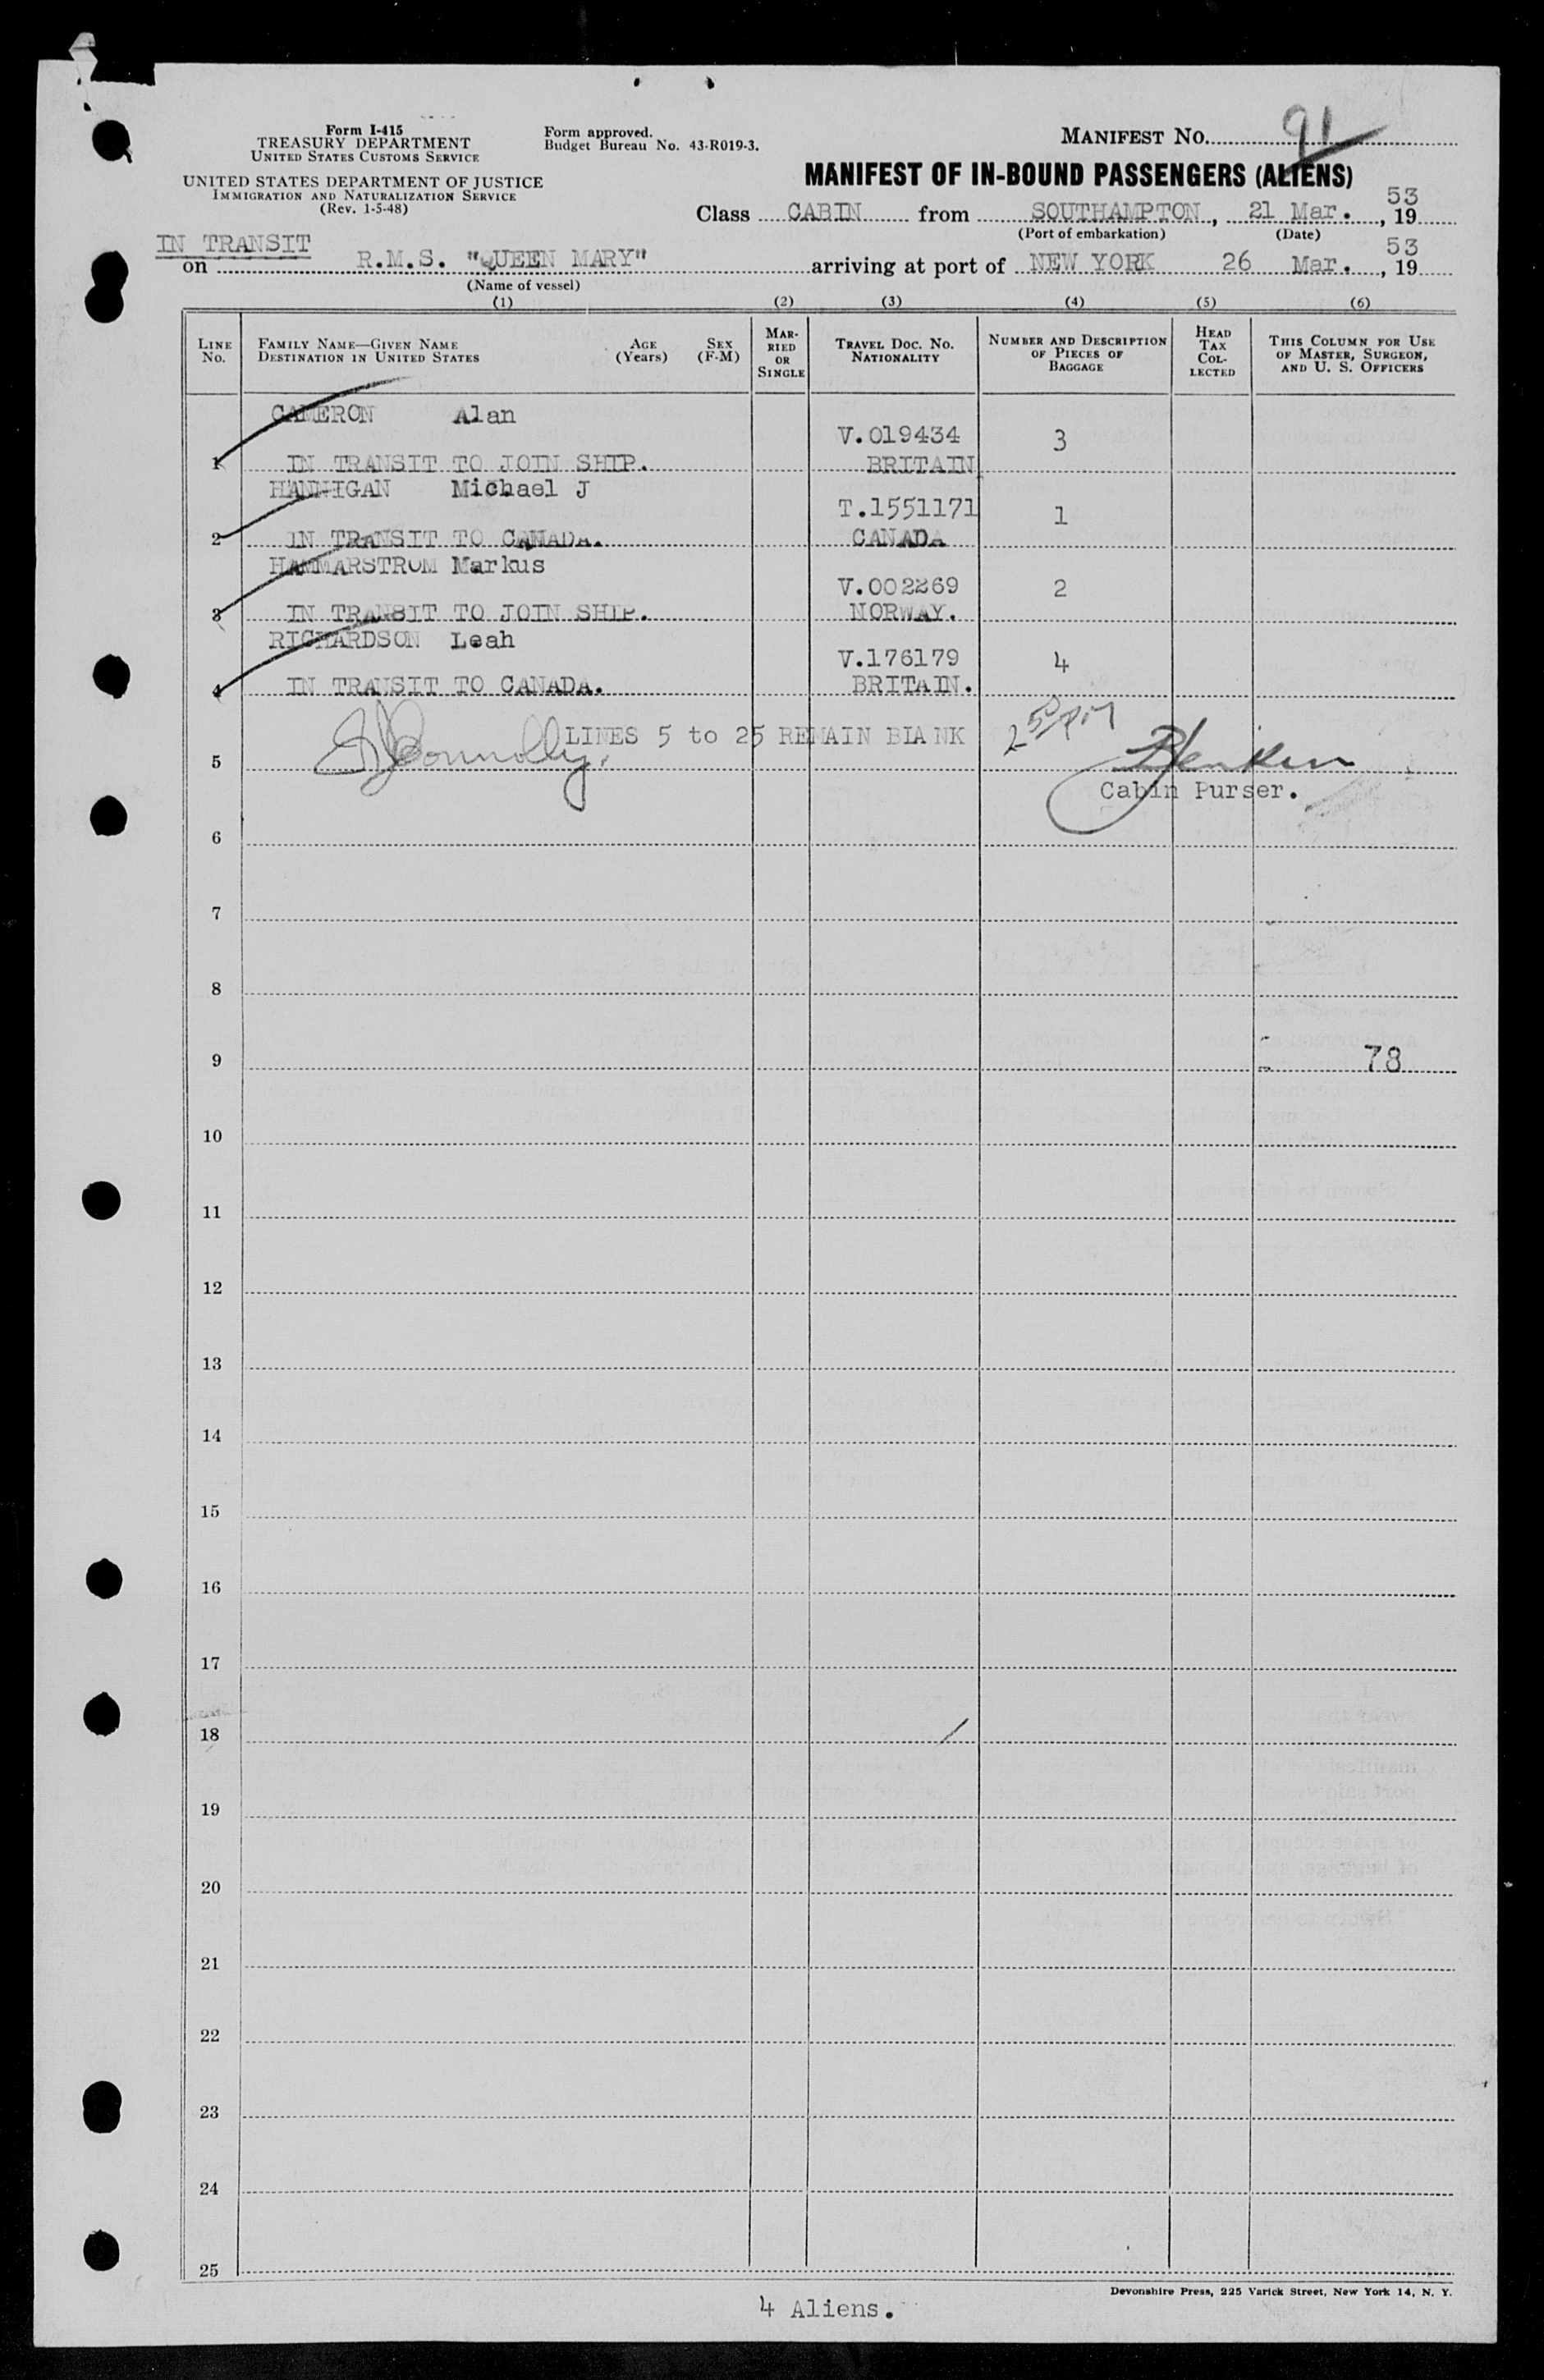 Form I-415
TREASURY DEPARTMENT
UNITED STATES CUSTOMS SERVICE
UNITED STATES DEPARTMENT OF JUSTICE
IMMIGRATION AND NATURALIZATION SERVICE
(Rev. 1-5-48)
Form approved.
Budget Bureau No. 43-R019-3.
MANIFEST NO. 91
MANIFEST OF IN-BOUND PASSENGERS (ALIENS)
Class CABIN from SOUTHAMPTON, 21 Mar., 1953
(Port of embarkation) (Date)
IN TRANSIT
on R.M.S. "QUEEN MARY" arriving at port of NEW YORK 26 Mar., 1953
(Name of vessel)
(1) (2) (3) (4) (5) (6)
LINE No. FAMILY NAME—GIVEN NAME DESTINATION IN UNITED STATES AGE (Years) SEX (F-M) MARRIED OR SINGLE TRAVEL DOC. NO. NATIONALITY NUMBER AND DESCRIPTION OF PIECES OF BAGGAGE HEAD TAX COLLECTED THIS COLUMN FOR USE OF MASTER, SURGEON, AND U. S. OFFICERS
CAMERON Alan
V.019434 3
1 IN TRANSIT TO JOIN SHIP. BRITAIN
HANNIGAN Michael J
T.1551171 1
2 IN TRANSIT TO CANADA. CANADA
HAMMARSTROM Markus
V.002269 2
3 IN TRANSIT TO JOIN SHIP. NORWAY.
RICHARDSON Leah
V.176179 4
4 IN TRANSIT TO CANADA. BRITAIN.
LINES 5 to 25 REMAIN BLANK
5
Cabin Purser.
6
7
8
9 78
10
11
12
13
14
15
16
17
18
19
20
21
22
23
24
25
Devonshire Press, 225 Varick Street, New York 14, N. Y.
4 Aliens.